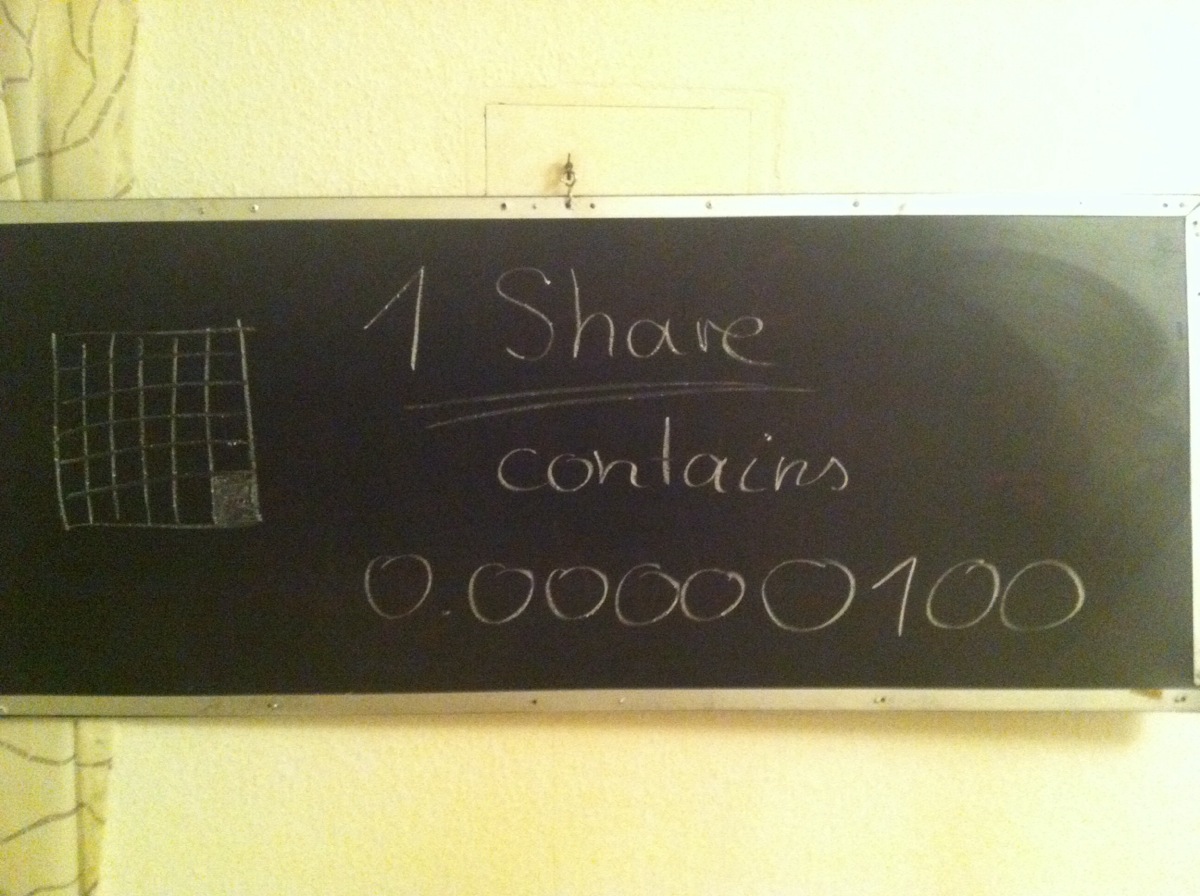 1 Share
contains
0.00000100